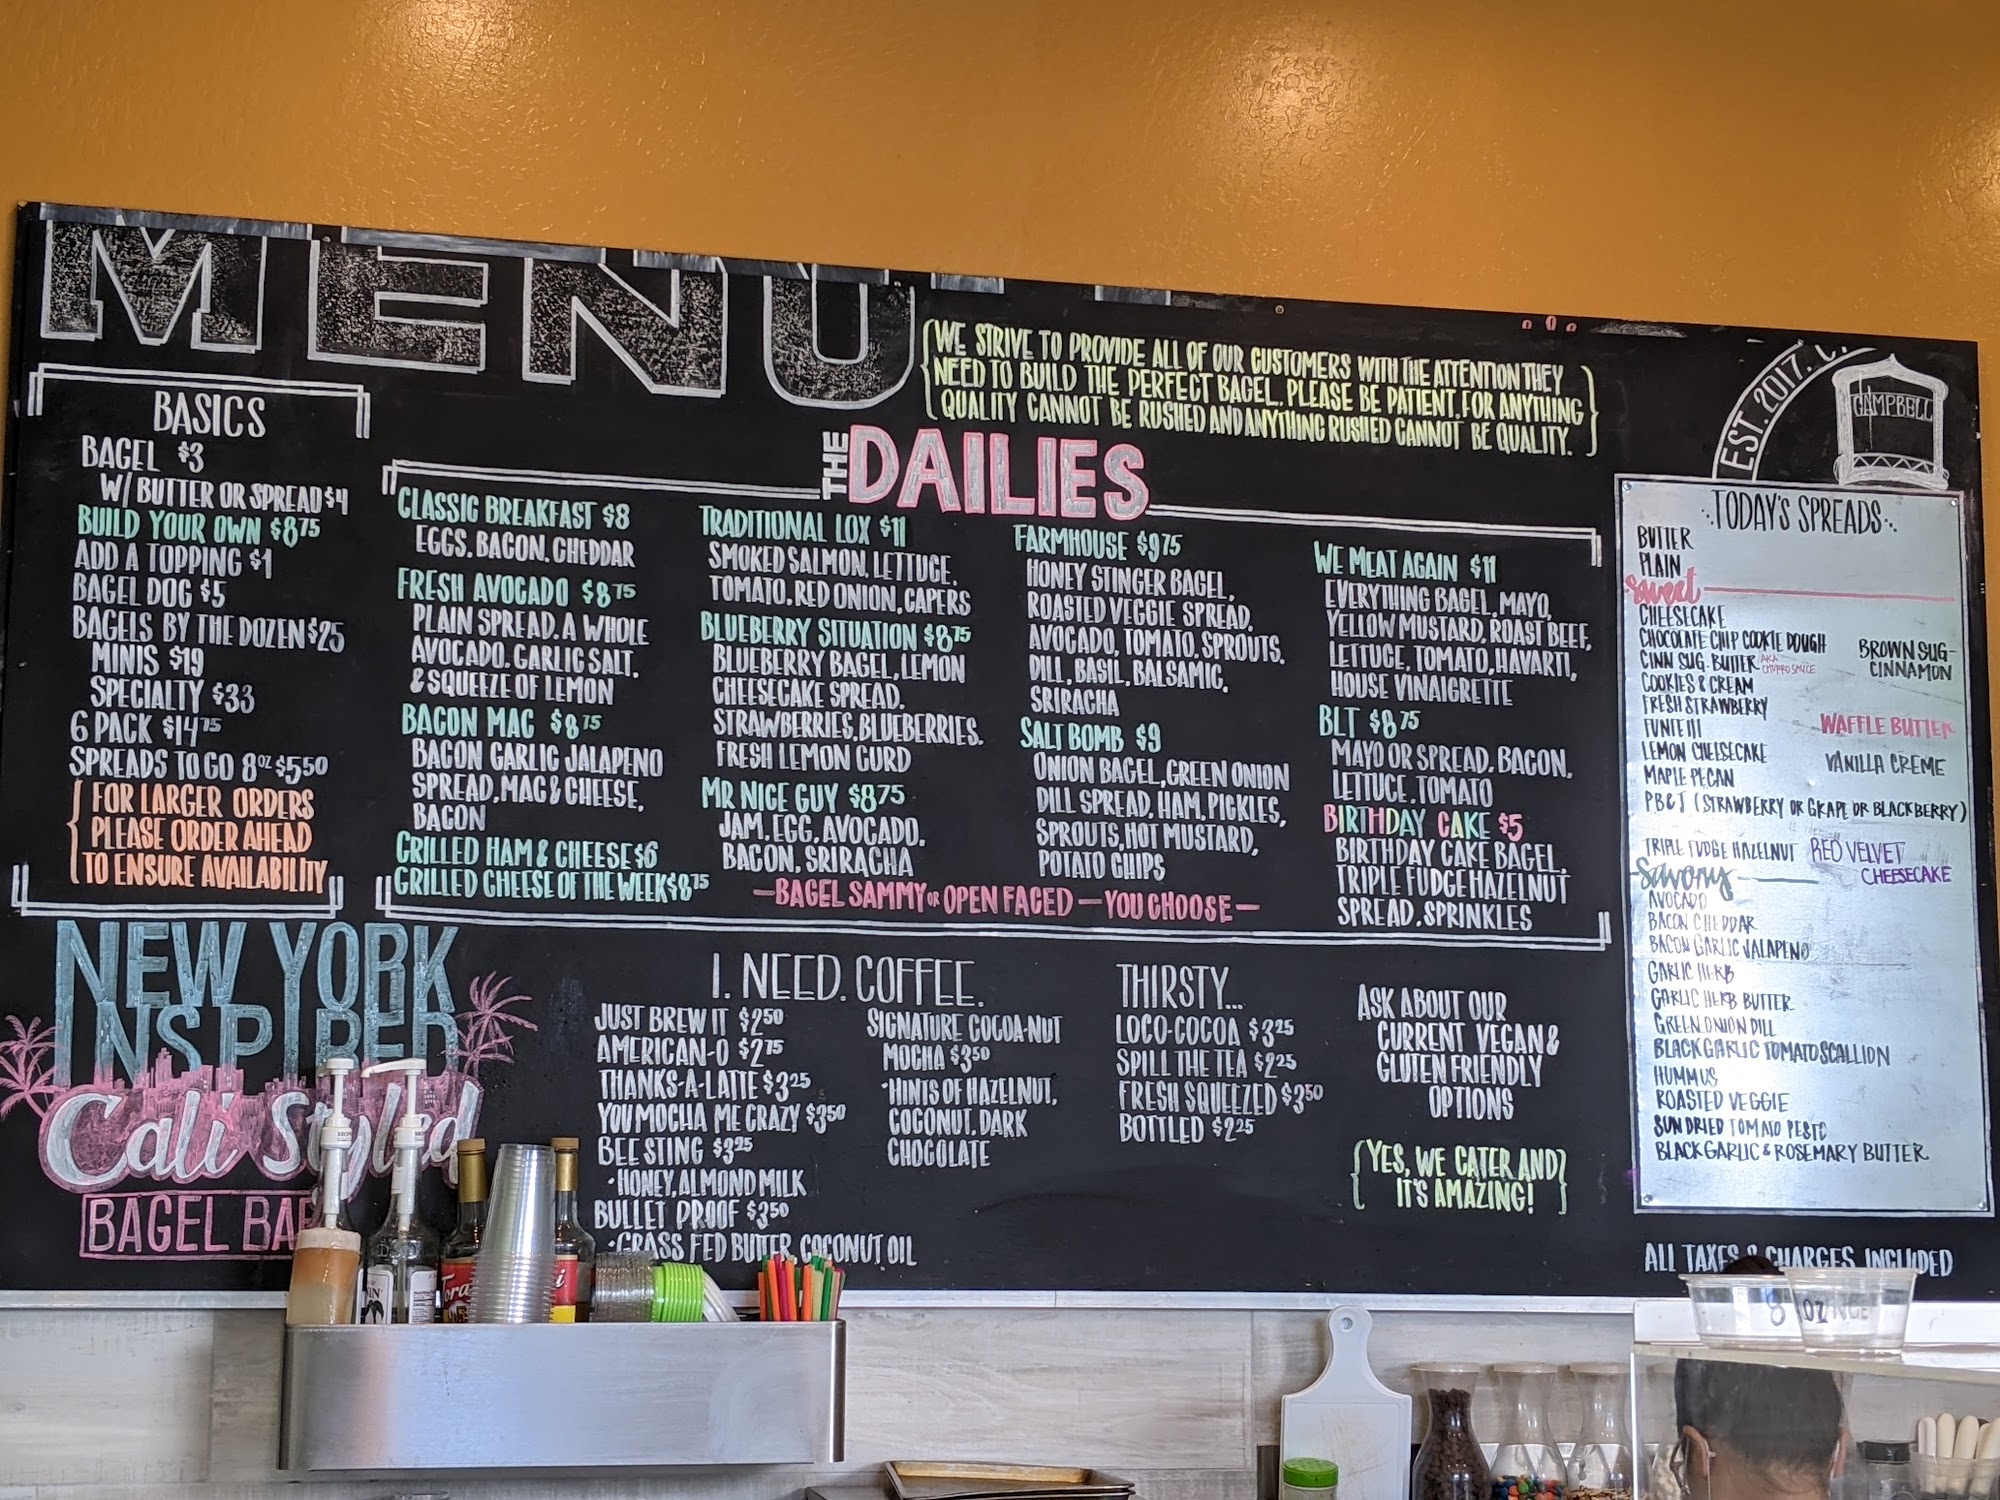 MENU
WE STRIVE TO PROVIDE ALL OF OUR CUSTOMERS WITH THE ATTENTION THEY
NEED TO BUILD THE PERFECT BAGEL. PLEASE BE PATIENT, FOR ANYTHING
QUALITY CANNOT BE RUSHED AND ANYTHING RUSHED CANNOT BE QUALITY.
EST. 2017.
CAMPBELL
BASICS
BAGEL $3
W/ BUTTER OR SPREAD $4
BUILD YOUR OWN $875
ADD A TOPPING $1
BAGEL DOG $5
BAGELS BY THE DOZEN $25
MINIS $19
SPECIALTY $33
6 PACK $1475
SPREADS TO GO 8OZ $550
FOR LARGER ORDERS
PLEASE ORDER AHEAD
TO ENSURE AVAILABILITY
THE DAILIES
CLASSIC BREAKFAST $8
EGGS, BACON, CHEDDAR
FRESH AVOCADO $875
PLAIN SPREAD, A WHOLE
AVOCADO, GARLIC SALT,
& SQUEEZE OF LEMON
BACON MAC $875
BACON GARLIC JALAPENO
SPREAD, MAC & CHEESE,
BACON
GRILLED HAM & CHEESE $6
GRILLED CHEESE OF THE WEEK $875
TRADITIONAL LOX $11
SMOKED SALMON, LETTUCE,
TOMATO, RED ONION, CAPERS
BLUEBERRY SITUATION $875
BLUEBERRY BAGEL, LEMON
CHEESECAKE SPREAD,
STRAWBERRIES, BLUEBERRIES,
FRESH LEMON CURD
MR NICE GUY $875
JAM, EGG, AVOCADO,
BACON, SRIRACHA
FARMHOUSE $975
HONEY STINGER BAGEL,
ROASTED VEGGIE SPREAD,
AVOCADO, TOMATO, SPROUTS,
DILL, BASIL, BALSAMIC,
SRIRACHA
SALT BOMB $9
ONION BAGEL, GREEN ONION
DILL SPREAD, HAM, PICKLES,
SPROUTS, HOT MUSTARD,
POTATO CHIPS
WE MEAT AGAIN $11
EVERYTHING BAGEL, MAYO,
YELLOW MUSTARD, ROAST BEEF,
LETTUCE, TOMATO, HAVARTI,
HOUSE VINAIGRETTE
BLT $875
MAYO OR SPREAD, BACON,
LETTUCE, TOMATO
BIRTHDAY CAKE $5
BIRTHDAY CAKE BAGEL,
TRIPLE FUDGE HAZELNUT
SPREAD, SPRINKLES
—BAGEL SAMMY OR OPEN FACED — YOU CHOOSE—
TODAY'S SPREADS
BUTTER
PLAIN
Sweet
CHEESECAKE
CHOCOLATE CHIP COOKIE DOUGH
CINN SUG. BUTTER AKA CHURRO SAUCE
COOKIES & CREAM
FRESH STRAWBERRY
FUNFETTI
LEMON CHEESECAKE
MAPLE PECAN
PB&J (STRAWBERRY OR GRAPE OR BLACKBERRY)
TRIPLE FUDGE HAZELNUT
BROWN SUG-
CINNAMON
WAFFLE BUTTER
VANILLA CREME
RED VELVET
CHEESECAKE
Savory
AVOCADO
BACON CHEDDAR
BACON GARLIC JALAPENO
GARLIC HERB
GARLIC HERB BUTTER
GREEN ONION DILL
BLACK GARLIC TOMATO SCALLION
HUMMUS
ROASTED VEGGIE
SUN DRIED TOMATO PESTO
BLACK GARLIC & ROSEMARY BUTTER
NEW YORK
INSPIRED
Cali Styled
BAGEL BAR
I. NEED. COFFEE.
JUST BREW IT $250
AMERICAN-O $275
THANKS-A-LATTE $325
YOU MOCHA ME CRAZY $350
BEE STING $325
•HONEY, ALMOND MILK
BULLET PROOF $350
•GRASS FED BUTTER, COCONUT OIL
SIGNATURE COCOA-NUT
MOCHA $350
•HINTS OF HAZELNUT,
COCONUT, DARK
CHOCOLATE
THIRSTY...
LOCO-COCOA $325
SPILL THE TEA $225
FRESH SQUEEZED $350
BOTTLED $225
ASK ABOUT OUR
CURRENT VEGAN &
GLUTEN FRIENDLY
OPTIONS
YES, WE CATER AND
IT'S AMAZING!
ALL TAXES & CHARGES INCLUDED
8 OUNCE